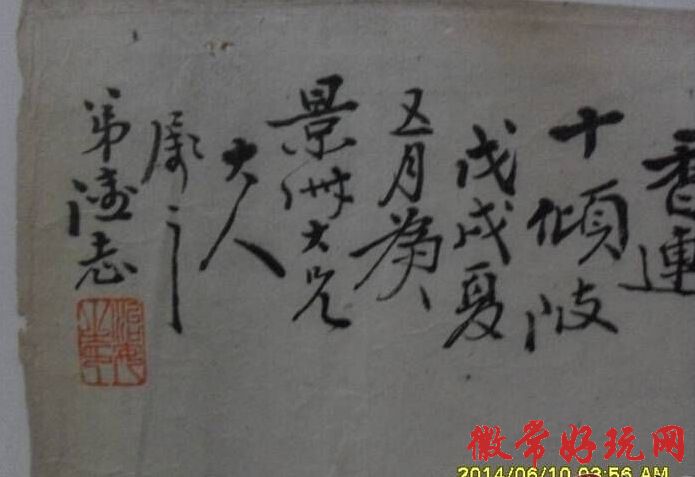 香連
十傾陂
戊戌夏
五月為
景州大兄
大人
弟志
徽常好玩网
2014/06/10 03:56 AM